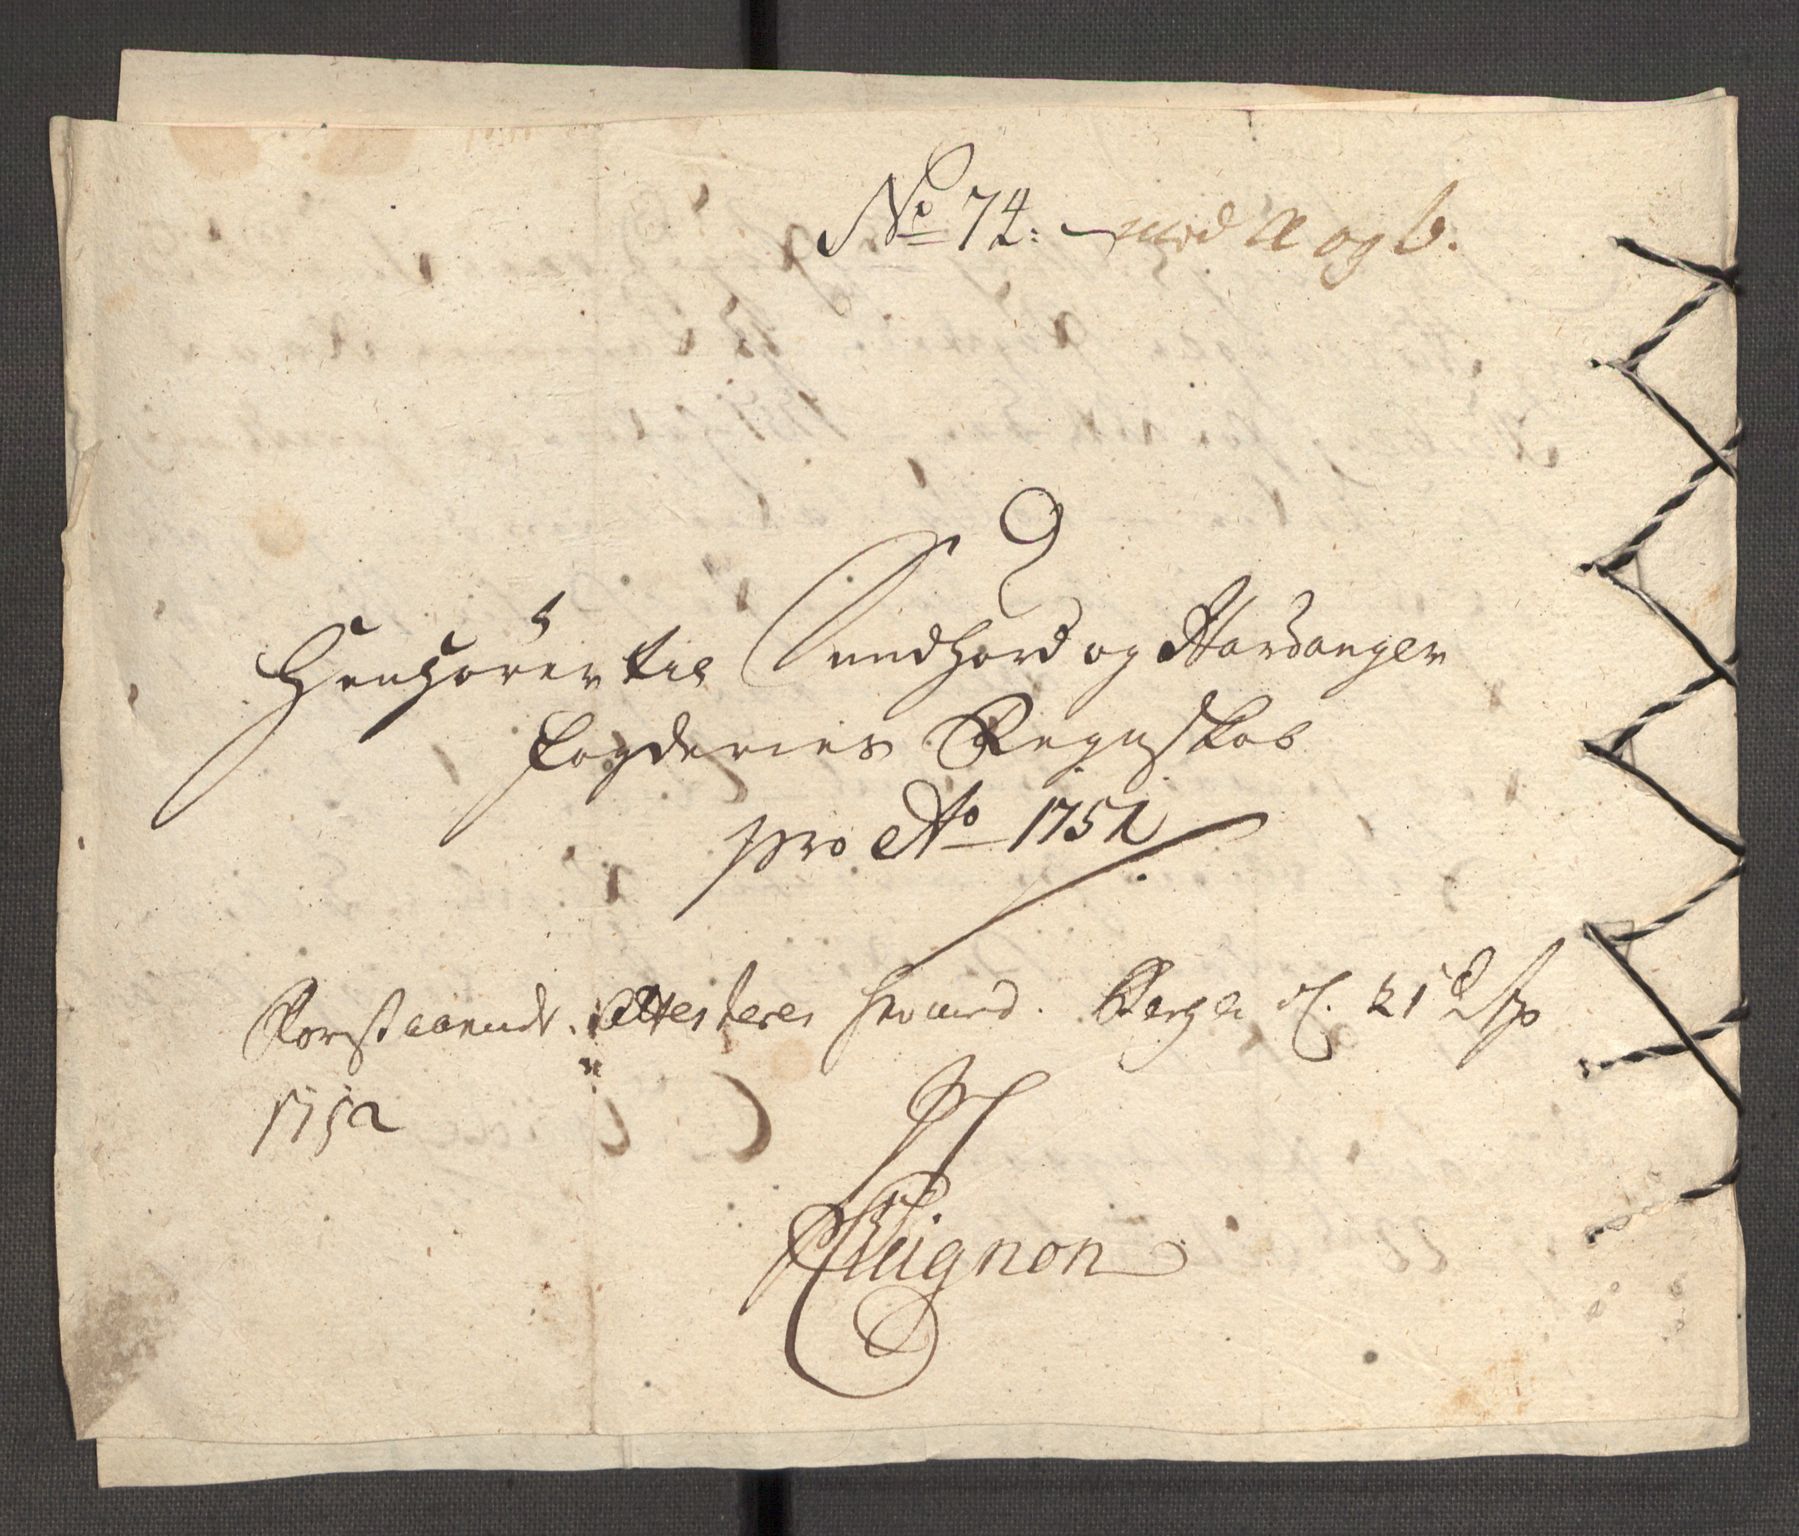 No 74: med a og b.
Henhörer til Sundhord og Hardanger
Fogderies Regnskab
pro Ao 1751
Forstaaende Attesteres herved. Bergen d. 21
1752
Mignon